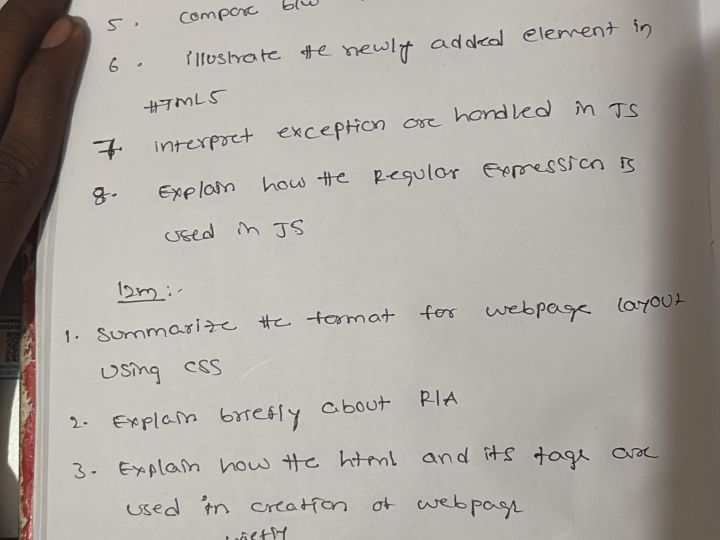 5. compare b/w
6. illustrate the newly added element in
HTML5
7. interpret exception are handled in JS
8. Explain how the Regular Expression is
used in JS
12m:-
1. Summarize the format for webpage layout
using CSS
2. Explain briefly about RIA
3. Explain how the html and its tags are
used in creation of webpage